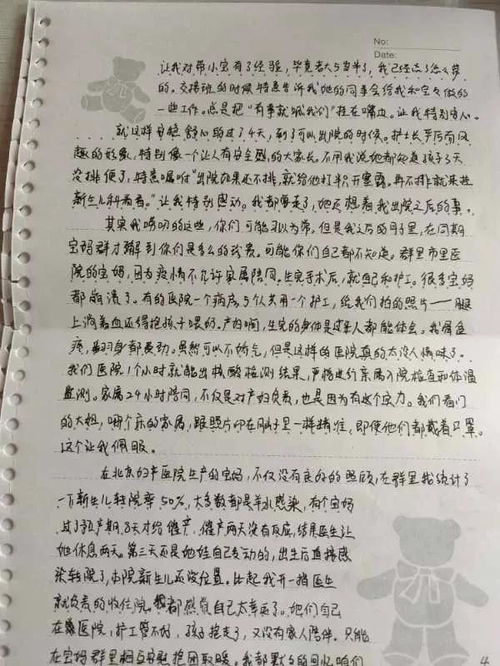 No:
Date:
让我对带小宝有了经验，毕竟老大与当年了，我已经忘了怎么带
的。交接班的时候特意告诉我她的同事会给我和宝宝做的
一些工作。总是把“有事就喊我们”挂在嘴边。让我特别安心。
就这样安稳舒心的过了4天，到了可以出院的时候。护士长严厉而风
趣的形象，特别像一个让人有安全感的大家长。不用我说她都知道孩子3天
没排便了，特意嘱咐“出院如果还不排，就给他打半个开塞露。再不排就来找
新生儿科看看”让我特别感动。我都要走了，她还想着我出院之后的事。
其实我唠叨的这些，你们可能习以为常，但是我这一个月子里，在同期
宝妈群才了解到你们是多么的珍贵。可能你们自己都不知道。群里市里医
院的宝妈，因为疫情不允许家属陪同。生完手术后，就自己和护工。很多宝妈
都崩溃了。有的医院一个病房，5个人共用一个护工，给我们拍的照片——腿
上淌着血还得抱孩子喂奶。产妇啊，生完的身体是过来人都能体会。我属鱼
疼，翻身都费劲。虽然可以不娇气，但是这样的医院真的太没人情味了。
我们医院1个小时就能出核酸检测结果，严格进行亲属入院检查和体温
监测。家属24小时陪同，不仅是对产妇负责，也是因为有这个实力。我们看门
的大姐，哪个床的家属，跟照片印在脑子里一样精准，即使他们都戴着口罩。
这个让我佩服。
在北京妇产医院生产的宝妈，不仅没有良好的照顾，在群里我统计了
一下新生儿转院率50%，大多数都是羊水感染，有个宝妈
过了预产期8天才给催产，催产两天没有反应，结果医生让
她休息两天。第三天还是她娃自己发动的，出生后直接感
染转院了，本院新生儿还没位置。比起我开一指医生
就负责的收住院。我都感觉自己太幸运了。她们自己
在医院，护工管不好，孩子抱走了，又没有家人陪伴。只能
在宝妈群里相互安慰抱团取暖。我都默默的回忆咱们